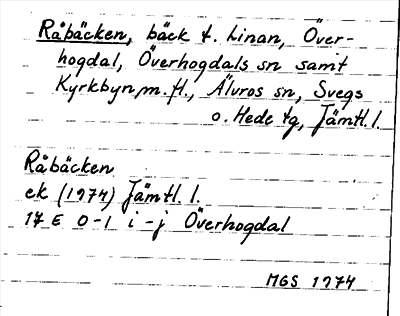 Råbäcken, bäck t. Linan, Över-
hogdal, Överhogdals sn samt
Kyrkbyn, m. fl., Älvros sn, Svegs
o. Hede tg, Jämtl. l.
Råbäcken
ek (1974) Jämtl. l.
17 E 0-1 i-j Överhogdal
MGS 1974